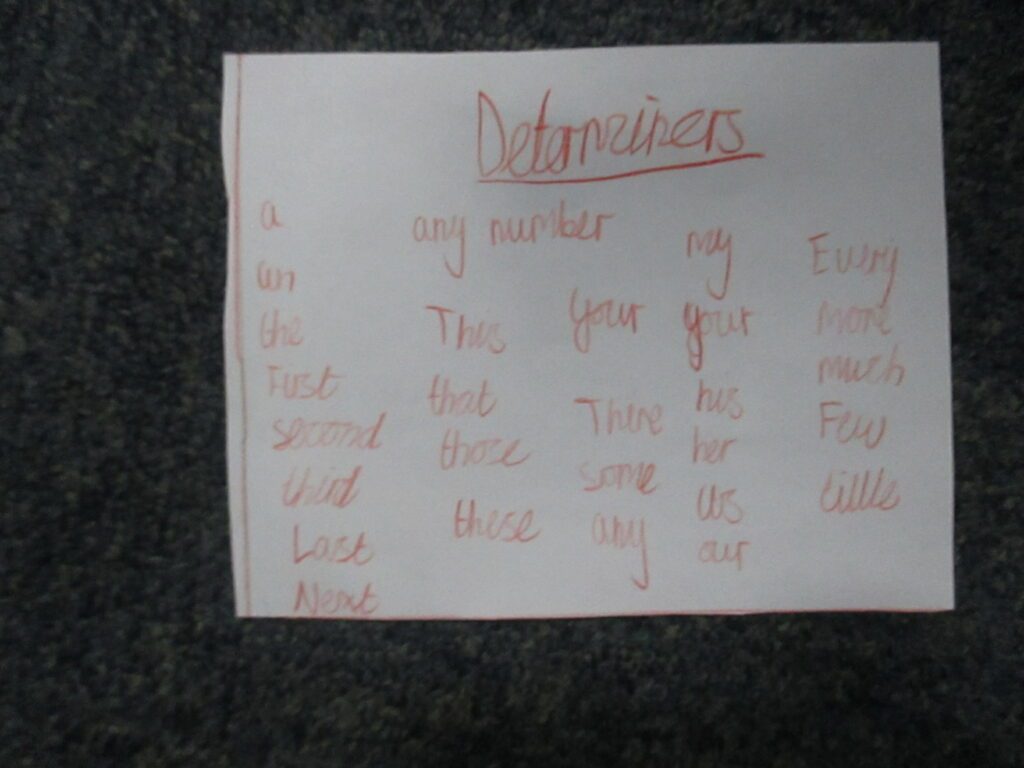 Determiners
a
an
the
First
second
third
Last
Next
any number
This
that
those
these
your
There
some
any
my
your
his
her
its
our
Every
more
much
Few
little